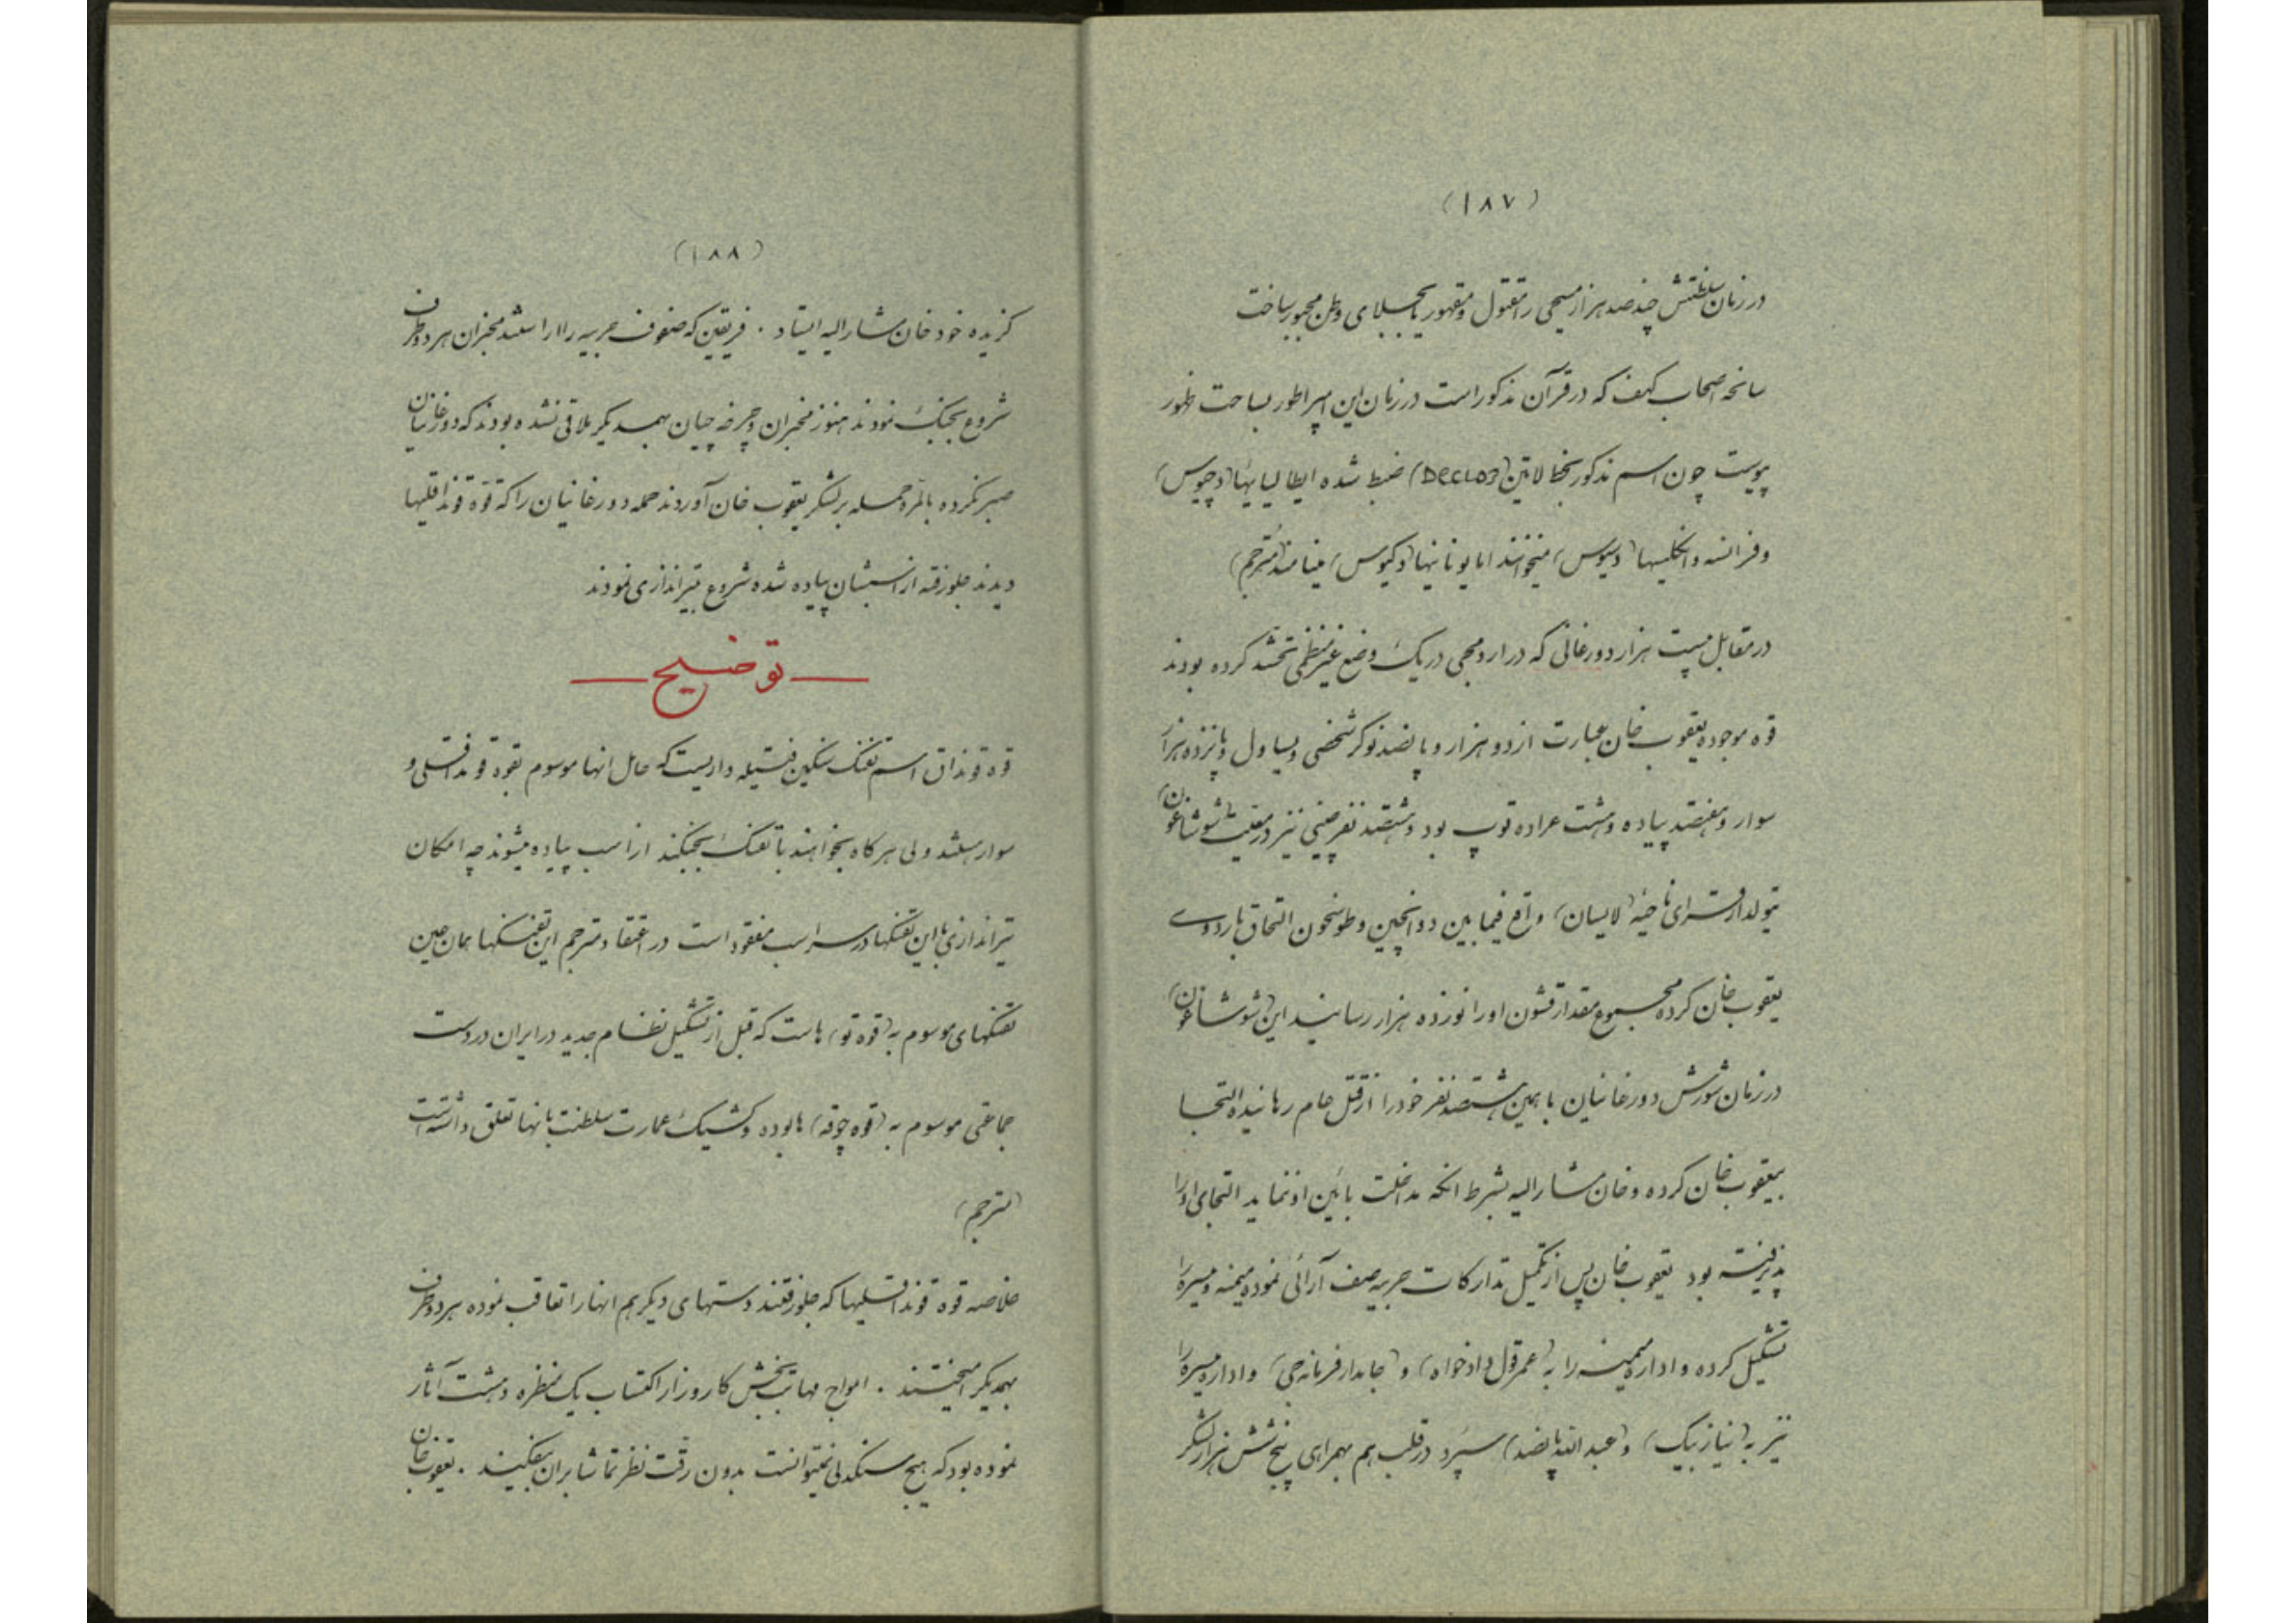 (۱۸۷)
در زمان سلطنتش چند صد هزار مسیحی را مقتول و مقهور یا بجلای وطن مجبور ساخت
سانحه اصحاب کهف که در قرآن مذکور است در زمان این امپراطور بساحت ظهور
پیوست چون اسم مذکور بخط لاتین (Decios) ضبط شده ایطالیاییها (دچیوس)
و فرانسه و انگلیسها (دسیوس) میخوانند اما یونانیها (دکیوس) مینامند (مترجم)
در مقابل بیست هزار دورغانی که در اردومچی در یک وضع غیر منظمی تحشد کرده بودند
قوه موجوده یعقوب خان عبارت از دو هزار و پانصد نوکر شخصی و یساول و پانزده هزار
سوار و هفتصد پیاده و هشت عراده توپ بود و هشتصد نفر چینی نیز در معیت (شوشاغون)
تولدار قرای ناحیه (لایسان) واقع فیمابین دوانچین و طوسخون التحاق باردوی
یعقوب خان کرده مجموع مقدار قشون او را نوزده هزار رسانید این (شوشاغون)
در زمان شورش دورغانیان با همین هشتصد نفر خود را از قتل عام رهانیده التجا
بیعقوب خان کرده و خان مشارالیه بشرط انکه مداخلت بائین او ننماید التجای او را
پذیرفته بود یعقوب خان پس از تکمیل تدارکات حربیه صف آرائی نموده میمنه و میسره را
تشکیل کرده و اداره میمنه را به (عمر قول دادخواه) و (جامدار فرمانه چی) و اداره میسره را
نیز به (نیاز بیک) و (عبدالله پانصد) سپرد در قلب هم بهمراهی پنج شش هزار لشکر
(۱۸۸)
گزیده خود خان مشارالیه ایستاد . فریقین که صفوف حربیه را آراستند مخبران هر دو طرف
شروع بجنگ نمودند هنوز مخبران و چرخه چیان بهمدیکر ملاقی نشده بودند که دورغانیان
صبر نکرده بالمره حمله بر لشکر یعقوب خان آوردند حمله دورغانیان را که قوه قونداقلیها
دیدند جلو رفته از اسبشان پیاده شده شروع بتیراندازی نمودند
توضیح
قوه قونداق اسم تفنک سنکین فتیله داریست که حامل انها موسوم بقوه قونداقلی و
سوار هستند ولی هر کاه بخواهند با تفنک بجنکند از اسب پیاده میشوند چه امکان
تیراندازی با این تفنکها در سر اسب مفقود است در اعتقاد مترجم این تفنکها همان عین
تفنکهای موسوم به (قوه تو) هاست که قبل از تشکیل نظام جدید در ایران در دست
جماعتی موسوم به (قوه چوقه) ها بوده و کشیک عمارت سلطنت بانها تعلق داشته است
(مترجم)
خلاصه قوه قونداقلیها که جلو رفتند دستهای دیکر هم انها را تعاقب نموده هر دو طرف
بهمدیکر امیختند . امواج مهابت بخش کارزار اکتساب یک منظره دهشت آثار
نموده بود که هیچ سنکدلی نمیتوانست بدون رقت نظر تماشا بران بیفکند . یعقوب خان